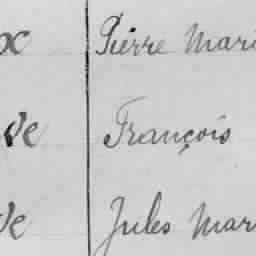 Pierre Mari
François
Jules Mar